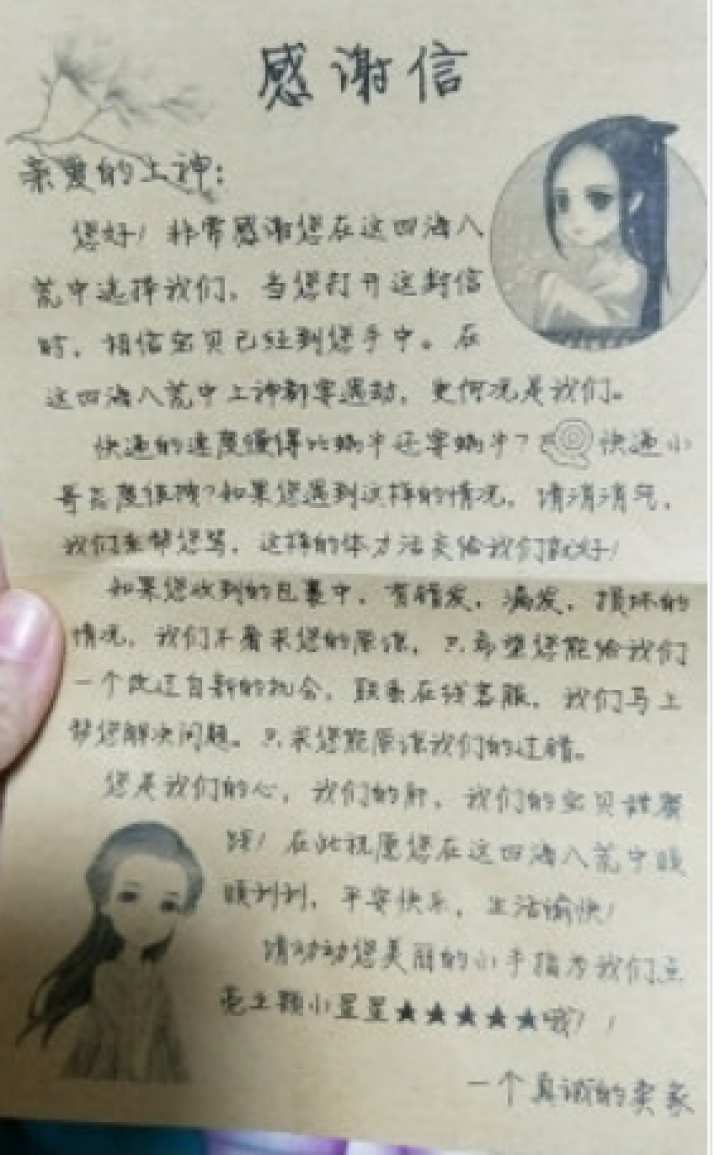 感谢信
亲爱的上神:
您好!非常感谢您在这四海八
荒中选择我们,当您打开这封信
时,相信宝贝已经到您手中。在
这四海八荒中上神都要遇劫,更何况是我们。
快递的速度慢得比蜗牛还要蜗牛?快递小
哥态度很拽?如果您遇到这样的情况,请消消气,
我们来帮您骂,这样的体力活交给我们就好!
如果您收到的包裹中,有错发,漏发,损坏的
情况,我们不奢求您的原谅,只希望您能给我们
一个改过自新的机会,联系在线客服,我们马上
帮您解决问题。只求您能原谅我们的过错。
您是我们的心,我们的肝,我们的宝贝甜蜜
饯!在此祝愿您在这四海八荒中顺
顺利利,平安快乐,生活愉快!
请动动您美丽的小手指为我们点
亮五颗小星星★★★★★哦!!
一个真诚的卖家